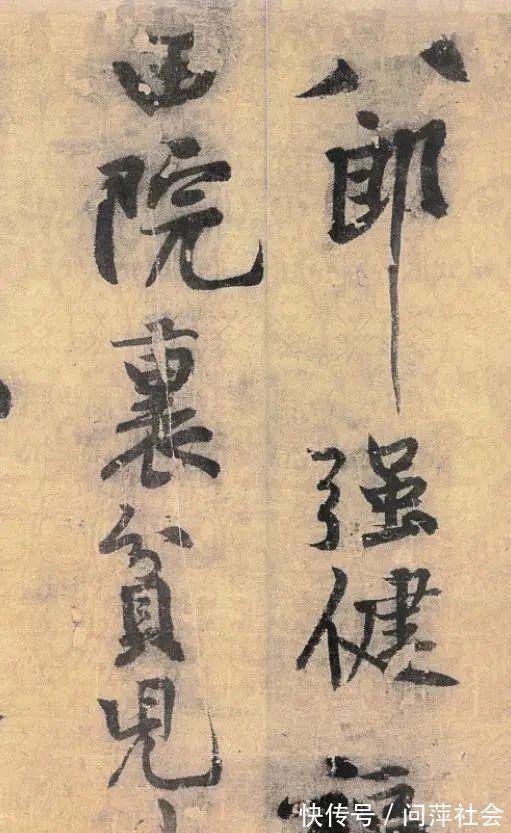 八郎强健
院裏貧兒
快传号 / 问萍社会